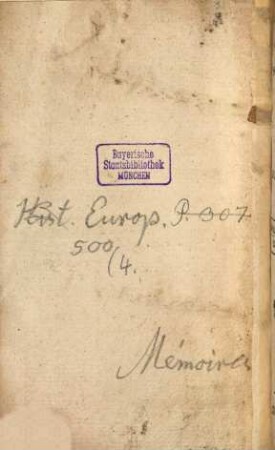 Bayerische
Staatsbibliothek
MÜNCHEN
Hist. Europ. P. 307
500/4.
Mémoires